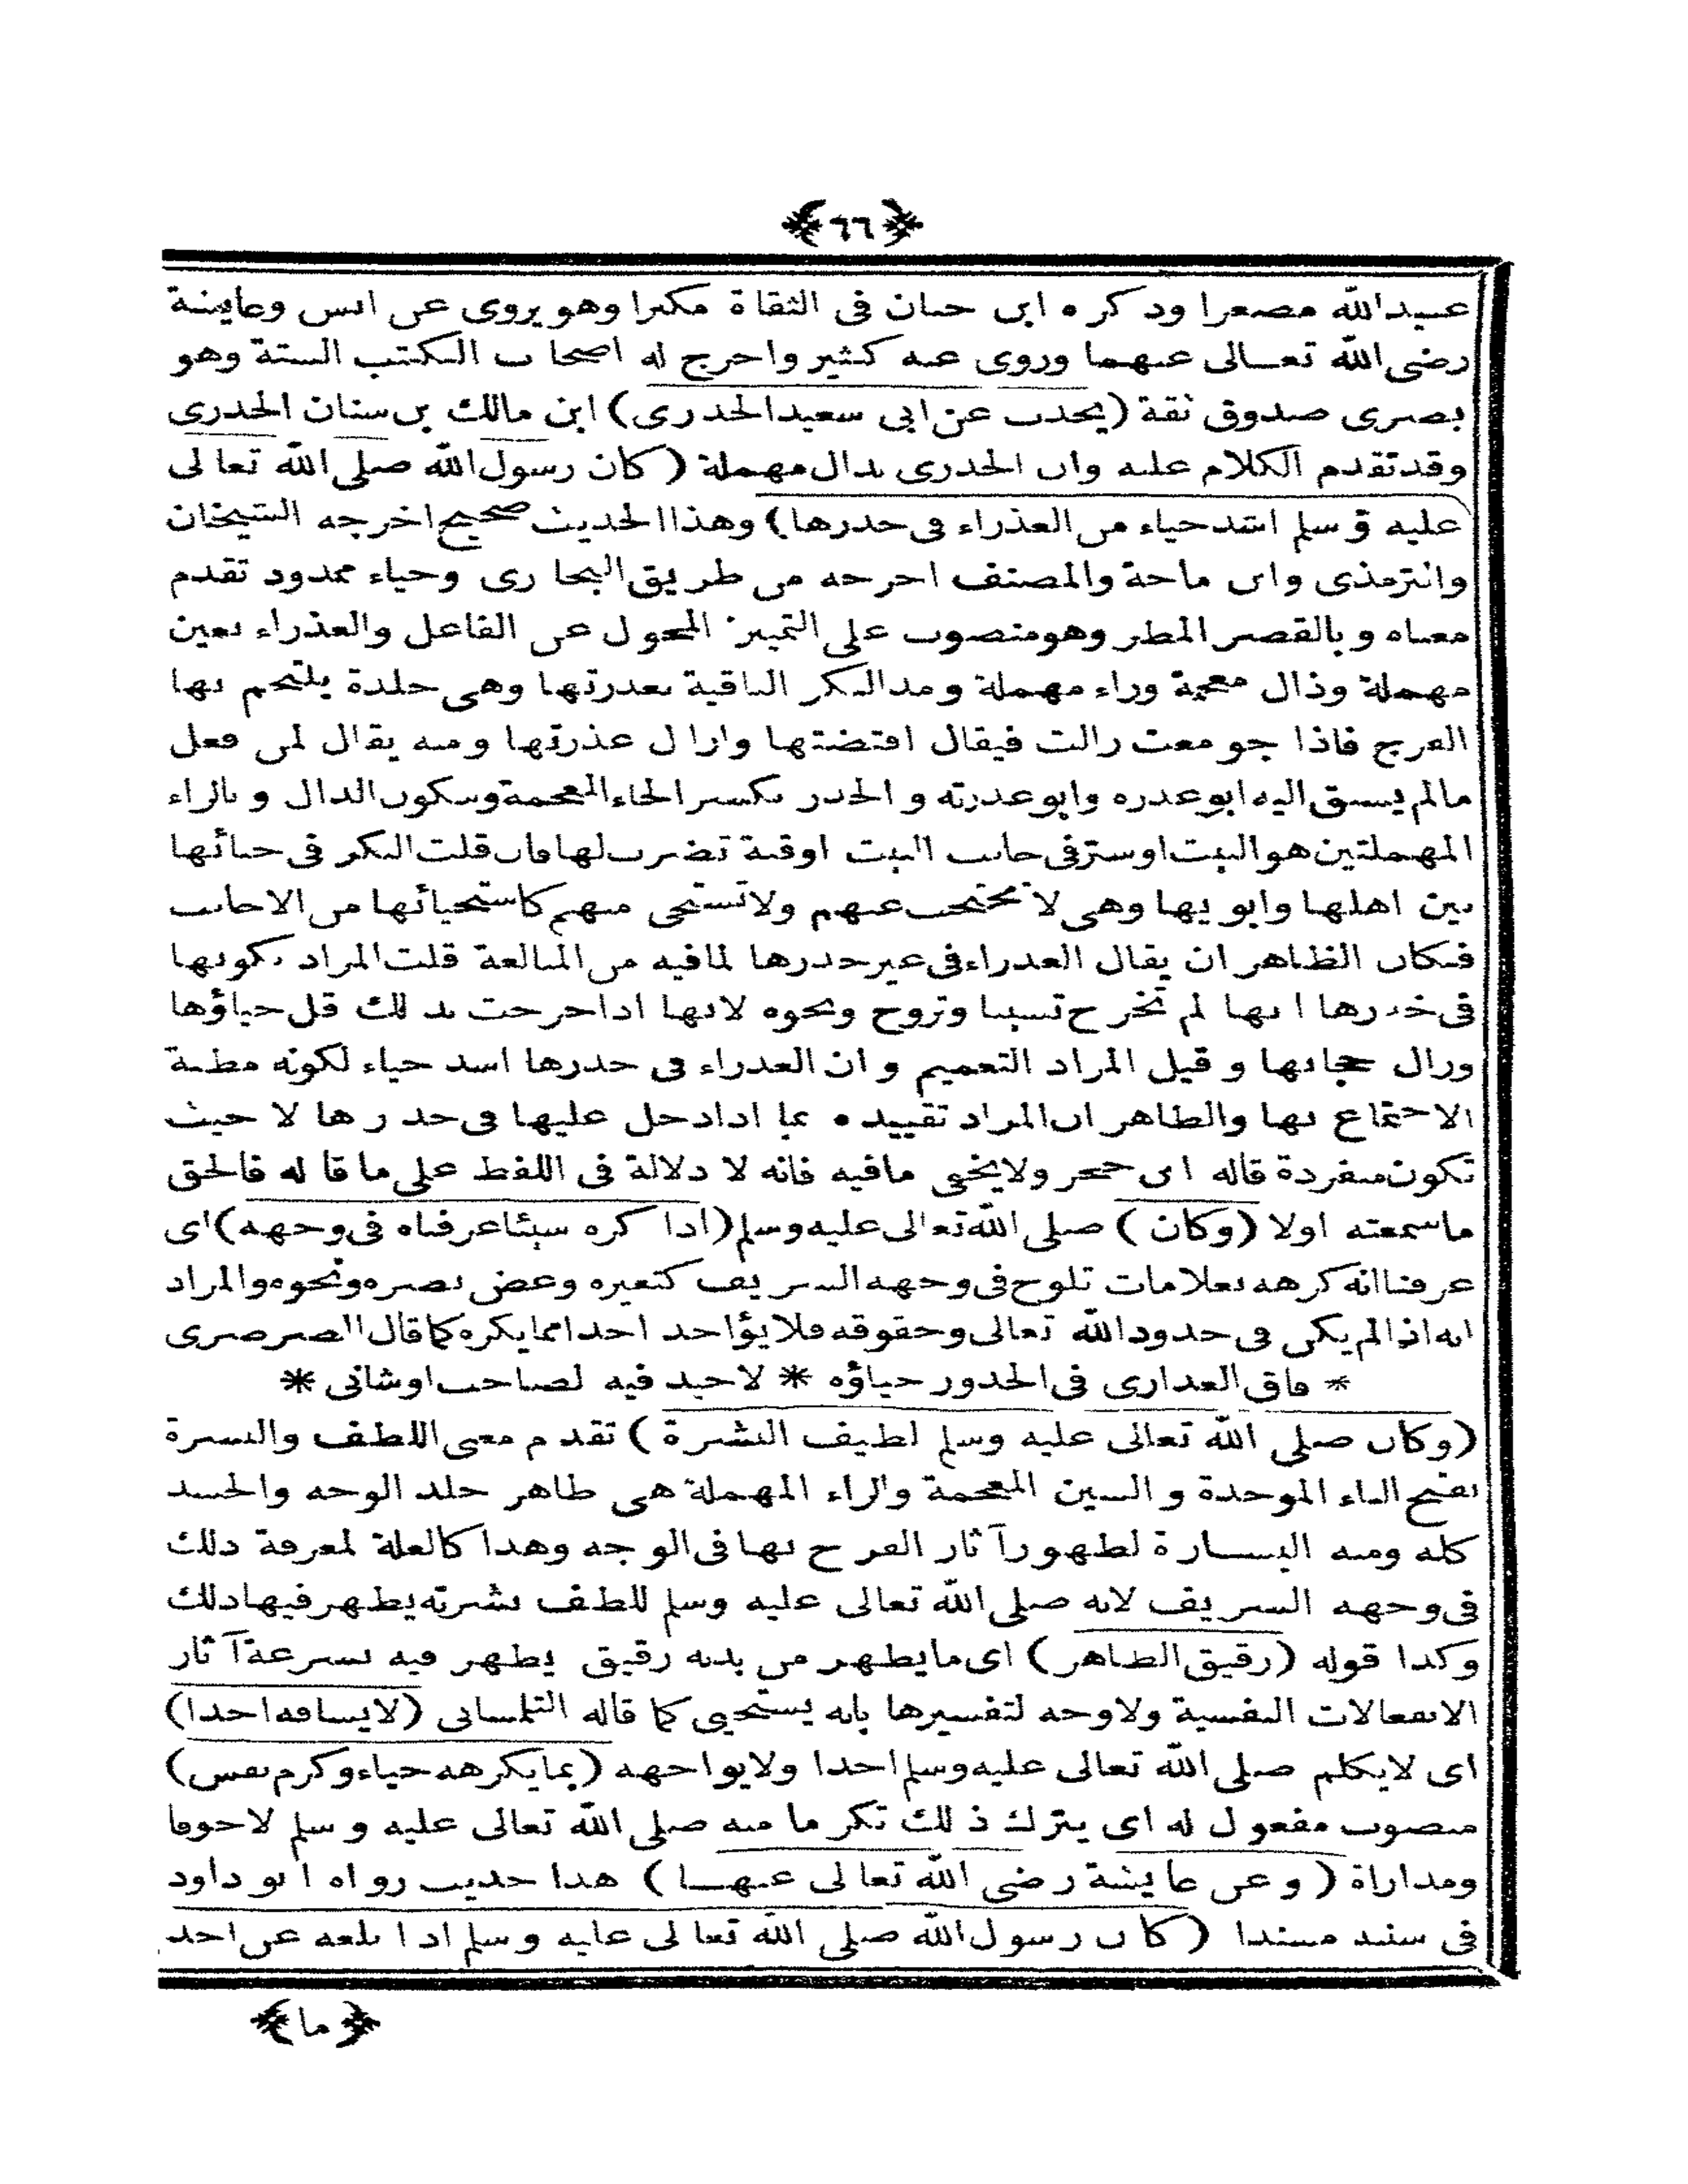 ﴿٦٦﴾
عبيدالله مصغرا وذكره ابن حبان فى الثقاة مكبرا وهو يروى عن انس وعايشة
رضى الله تعالى عنهما وروى عنه كثير واخرج له اصحاب الكتب الستة وهو
بصرى صدوق ثقة (يحدث عن ابى سعيد الخدرى) ابن مالك بن سنان الخدرى
وقد تقدم الكلام عليه وان الخدرى بدال مهملة (كان رسول الله صلى الله تعالى
عليه وسلم اشد حياء من العذراء فى خدرها) وهذا الحديث صحيح اخرجه الشيخان
والترمذى وابن ماجة والمصنف اخرجه من طريق البخارى وحياء ممدود تقدم
معناه وبالقصر المطر وهو منصوب على التمييز المحول عن الفاعل والعذراء بعين
مهملة وذال معجمة وراء مهملة ومد البكر الباقية بعذرتها وهى جلدة يلتحم بها
الفرج فاذا جومعت زالت فيقال افتضتها وازال عذرتها ومنه يقال لمن فعل
مالم يسبق اليه ابو عذره وابو عذرته والخدر بكسر الخاء المعجمة وسكون الدال وبالراء
المهملتين هو البيت او ستر فى جانب البيت او قبة تضرب لها فان قلت البكر فى حيائها
بين اهلها وابويها وهى لا تحتجب عنهم ولا تستحى منهم كاستحيائها من الاجانب
فكان الظاهر ان يقال العذراء فى غير خدرها لما فيه من المبالغة قلت المراد بكونها
فى خدرها انها لم تخرج تسببا وتزوج ونحوه لانها اذا خرجت بذلك قل حياؤها
وزال حجابها وقيل المراد التعميم وان العذراء فى خدرها اشد حياء لكونه مظنة
الاجتماع بها والظاهر ان المراد تقييده بما اذا دخل عليها فى خدرها لا حيث
تكون منفردة قاله ابن حجر ولا يخفى ما فيه فانه لا دلالة فى اللفظ على ما قاله فالحق
ما سمعته اولا (وكان) صلى الله تعالى عليه وسلم (اذا كره شيئا عرفناه فى وجهه) اى
عرفنا انه كرهه بعلامات تلوح فى وجهه الشريف كتغيره وغض بصره ونحوه والمراد
انه اذا لم يكن فى حدود الله تعالى وحقوقه فلا يؤاخذ احدا مما يكره كما قال الصرصرى
* فاق العذارى فى الخدور حياؤه * لاحيد فيه لصاحب او شانى *
(وكان صلى الله تعالى عليه وسلم لطيف البشرة) تقدم معنى اللطف والبشرة
بفتح الباء الموحدة والشين المعجمة والراء المهملة هى ظاهر جلد الوجه والجسد
كله ومنه البشارة لظهور آثار الفرح بها فى الوجه وهذا كالعلة لمعرفة ذلك
فى وجهه الشريف لانه صلى الله تعالى عليه وسلم للطف بشرته يظهر فيها ذلك
وكذا قوله (رقيق الظاهر) اى ما يظهر من بدنه رقيق يظهر فيه بسرعة آثار
الانفعالات النفسية ولا وجه لتفسيرها بانه يستحيى كما قاله التلمسانى (لا يشافه احدا)
اى لا يكلم صلى الله تعالى عليه وسلم احدا ولا يواجهه (بما يكرهه حياء وكرم نفس)
منصوب مفعول له اى يترك ذلك تكرما منه صلى الله تعالى عليه وسلم لا خوفا
ومداراة (وعن عايشة رضى الله تعالى عنها) هذا حديث رواه ابو داود
فى سند مسندا (كان رسول الله صلى الله تعالى عليه وسلم اذا بلغه عن احد
﴿ما﴾